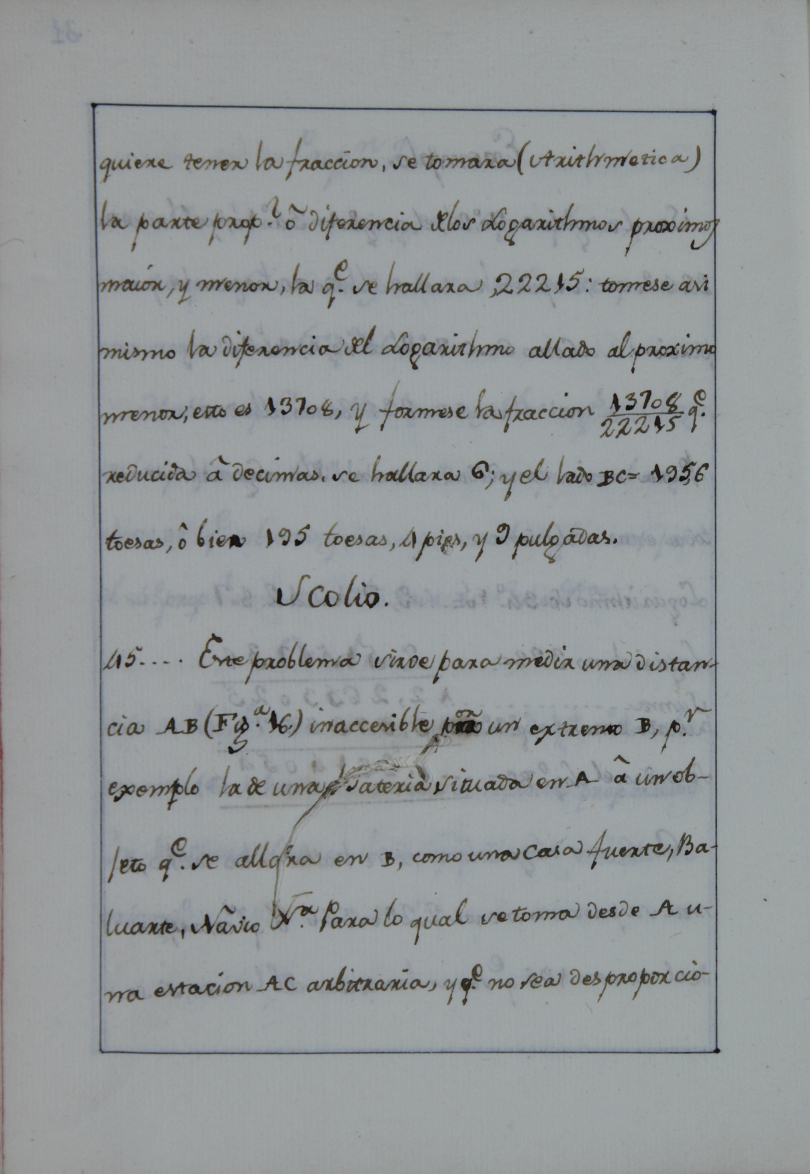 quiere tener la fraccion, se tomara (Arithmetica)
la parte prop.l ô diferencia de los Logarithmos proximos
maior, y menor, la q.e se hallara ,22215: tomese asi
mismo la diferencia del Logarithmo allado al proximo
menor, esto es 13708, y formese la fraccion 13708/22215 q.e
reducida â decimas. se hallara 6; y el lado BC= 195,6
toesas, ô bien 195 toesas, 4 pies, y 9 pulgadas.
Scolio.
45.... Este problema sirve para medir una distan-
cia AB (Fig.a 16.) inaccesible por un extremo B, p.r
exemplo la de una Bateria situada en A â un ob-
jeto q.e se allara en B, como una Casa fuerte, Ba-
luarte, Navio &.a Para lo qual se toma desde A u-
na estacion AC arbitraria, y q.e no sea desproporcio-